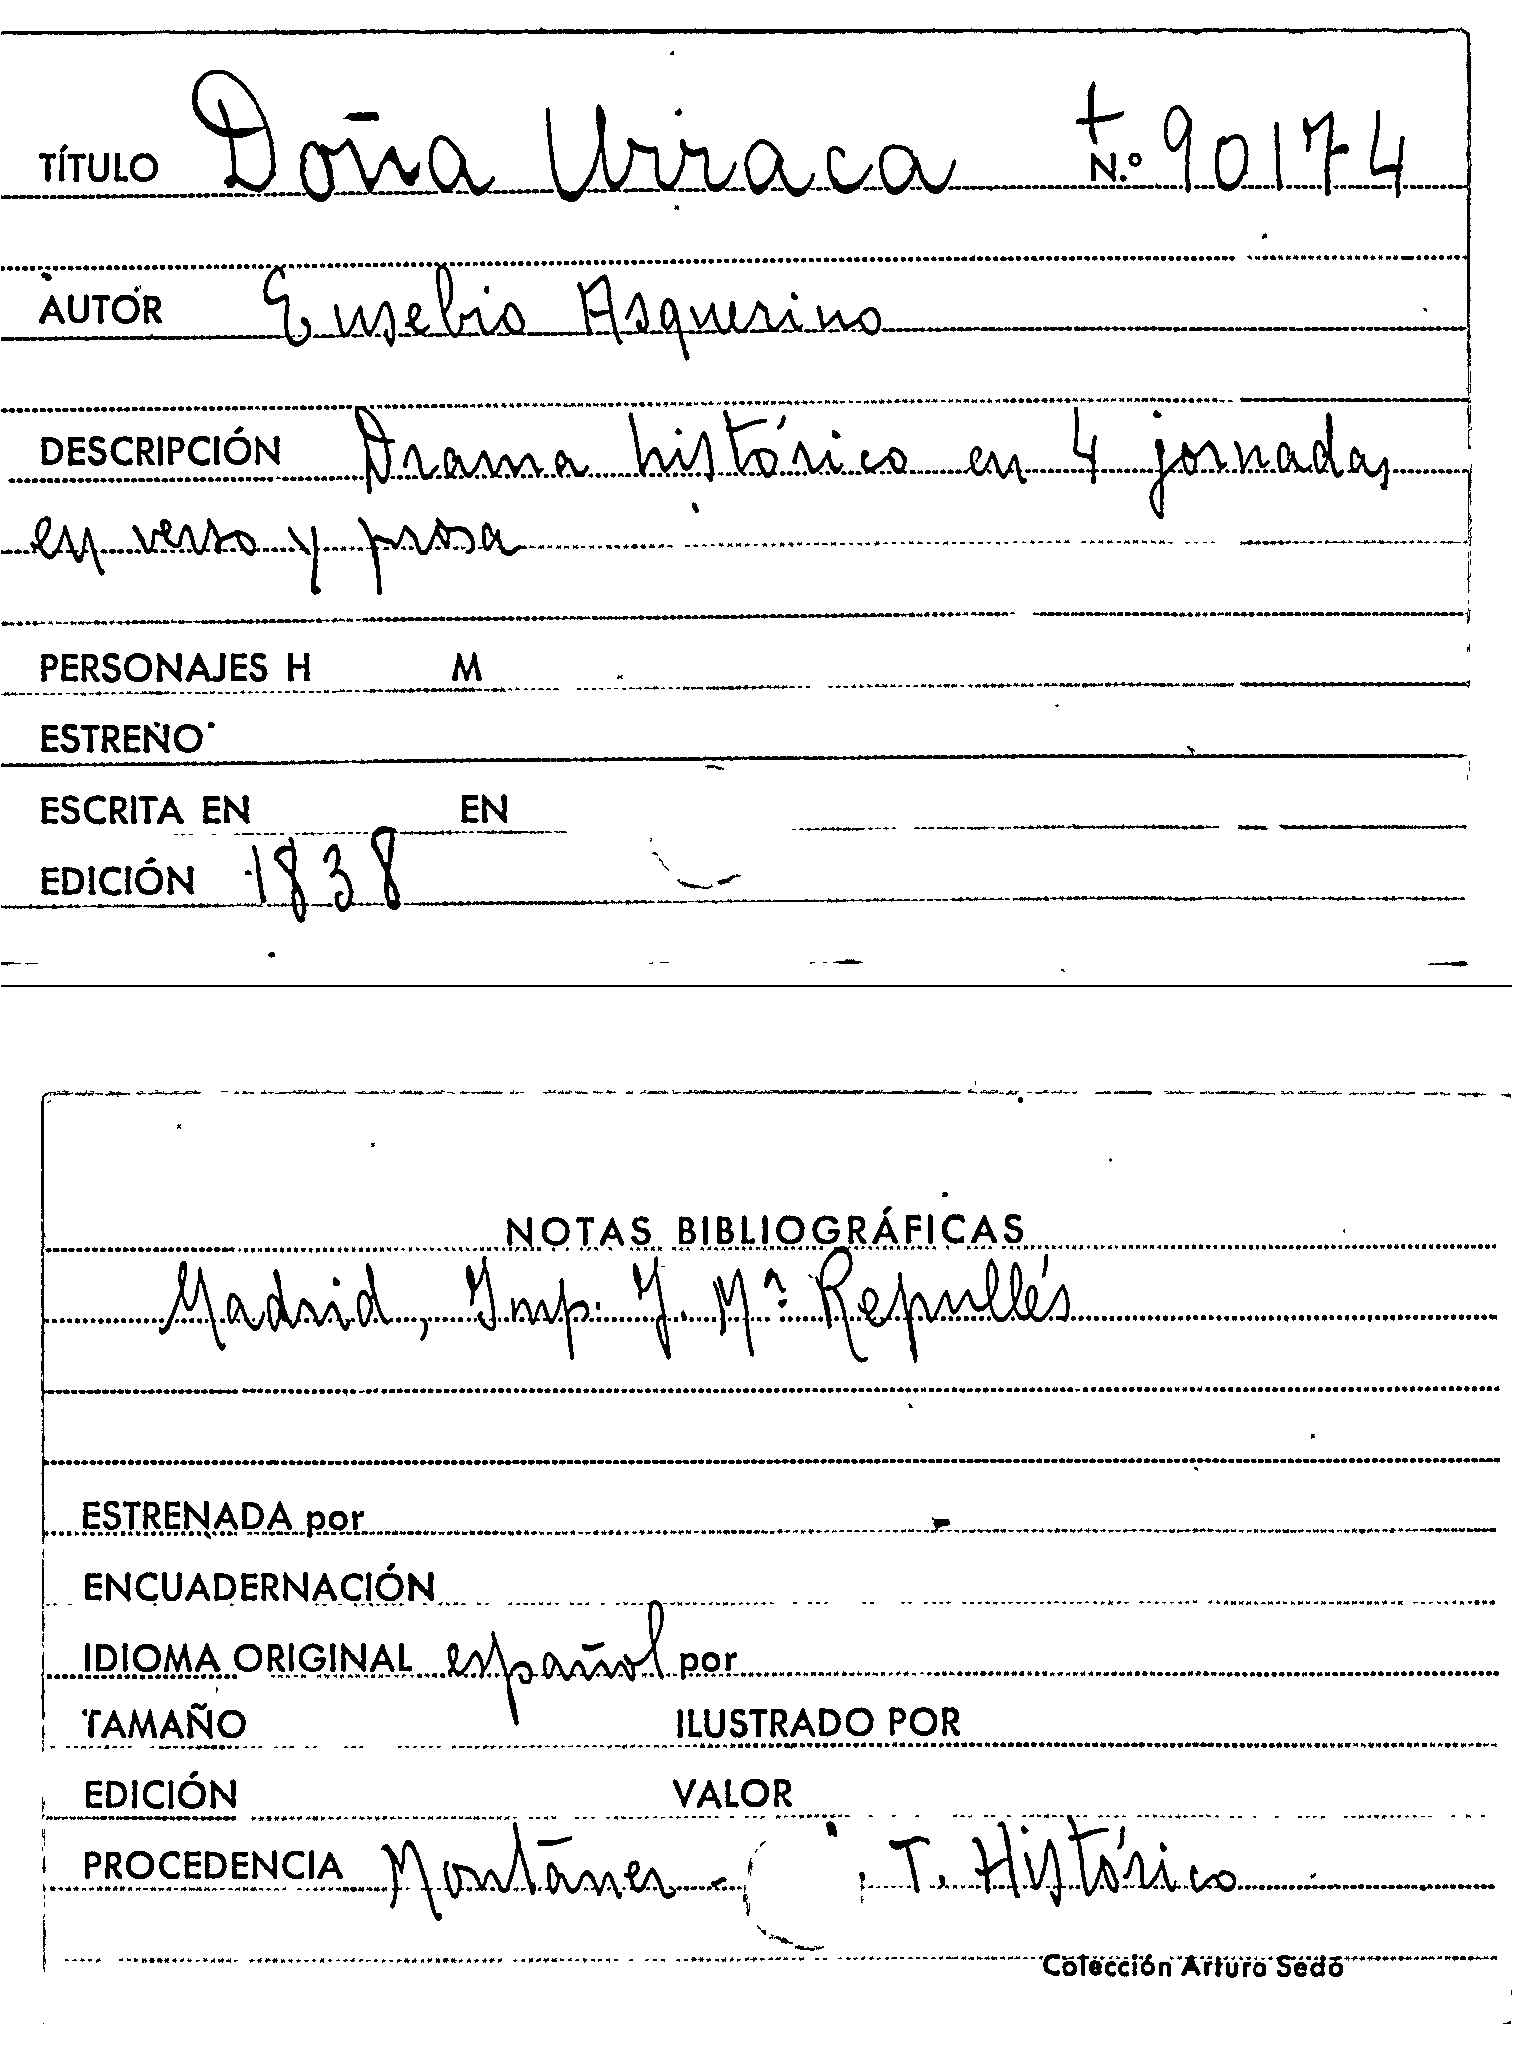 TÍTULO Doña Urraca + N.º 90174
AUTOR Eusebio Asquerino
DESCRIPCIÓN Drama histórico en 4 jornadas,
en verso y prosa
PERSONAJES H M
ESTRENO
ESCRITA EN EN
EDICIÓN 1838
NOTAS BIBLIOGRÁFICAS
Madrid, Imp. J. Mª Repullés
ESTRENADA por
ENCUADERNACIÓN
IDIOMA ORIGINAL español por
TAMAÑO ILUSTRADO POR
EDICIÓN VALOR
PROCEDENCIA Montañer - T. Histórico
Colección Arturo Sedó